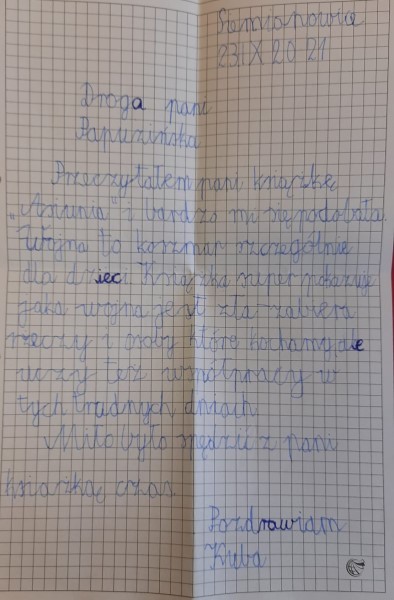 Siemianowice
23 IX 2021
Droga pani
Papuzińska
Przeczytałem pani książkę
„Asiunia” i bardzo mi się podobała.
Wojna to koszmar szczególnie
dla dzieci. Książka super pokazuje
jaka wojna jest zła-zabiera
rzeczy i osoby które kochamy, ale
uczy też współpracy w
tych trudnych dniach.
Miło było spędzić z pani
książką czas.
Pozdrawiam
Kuba